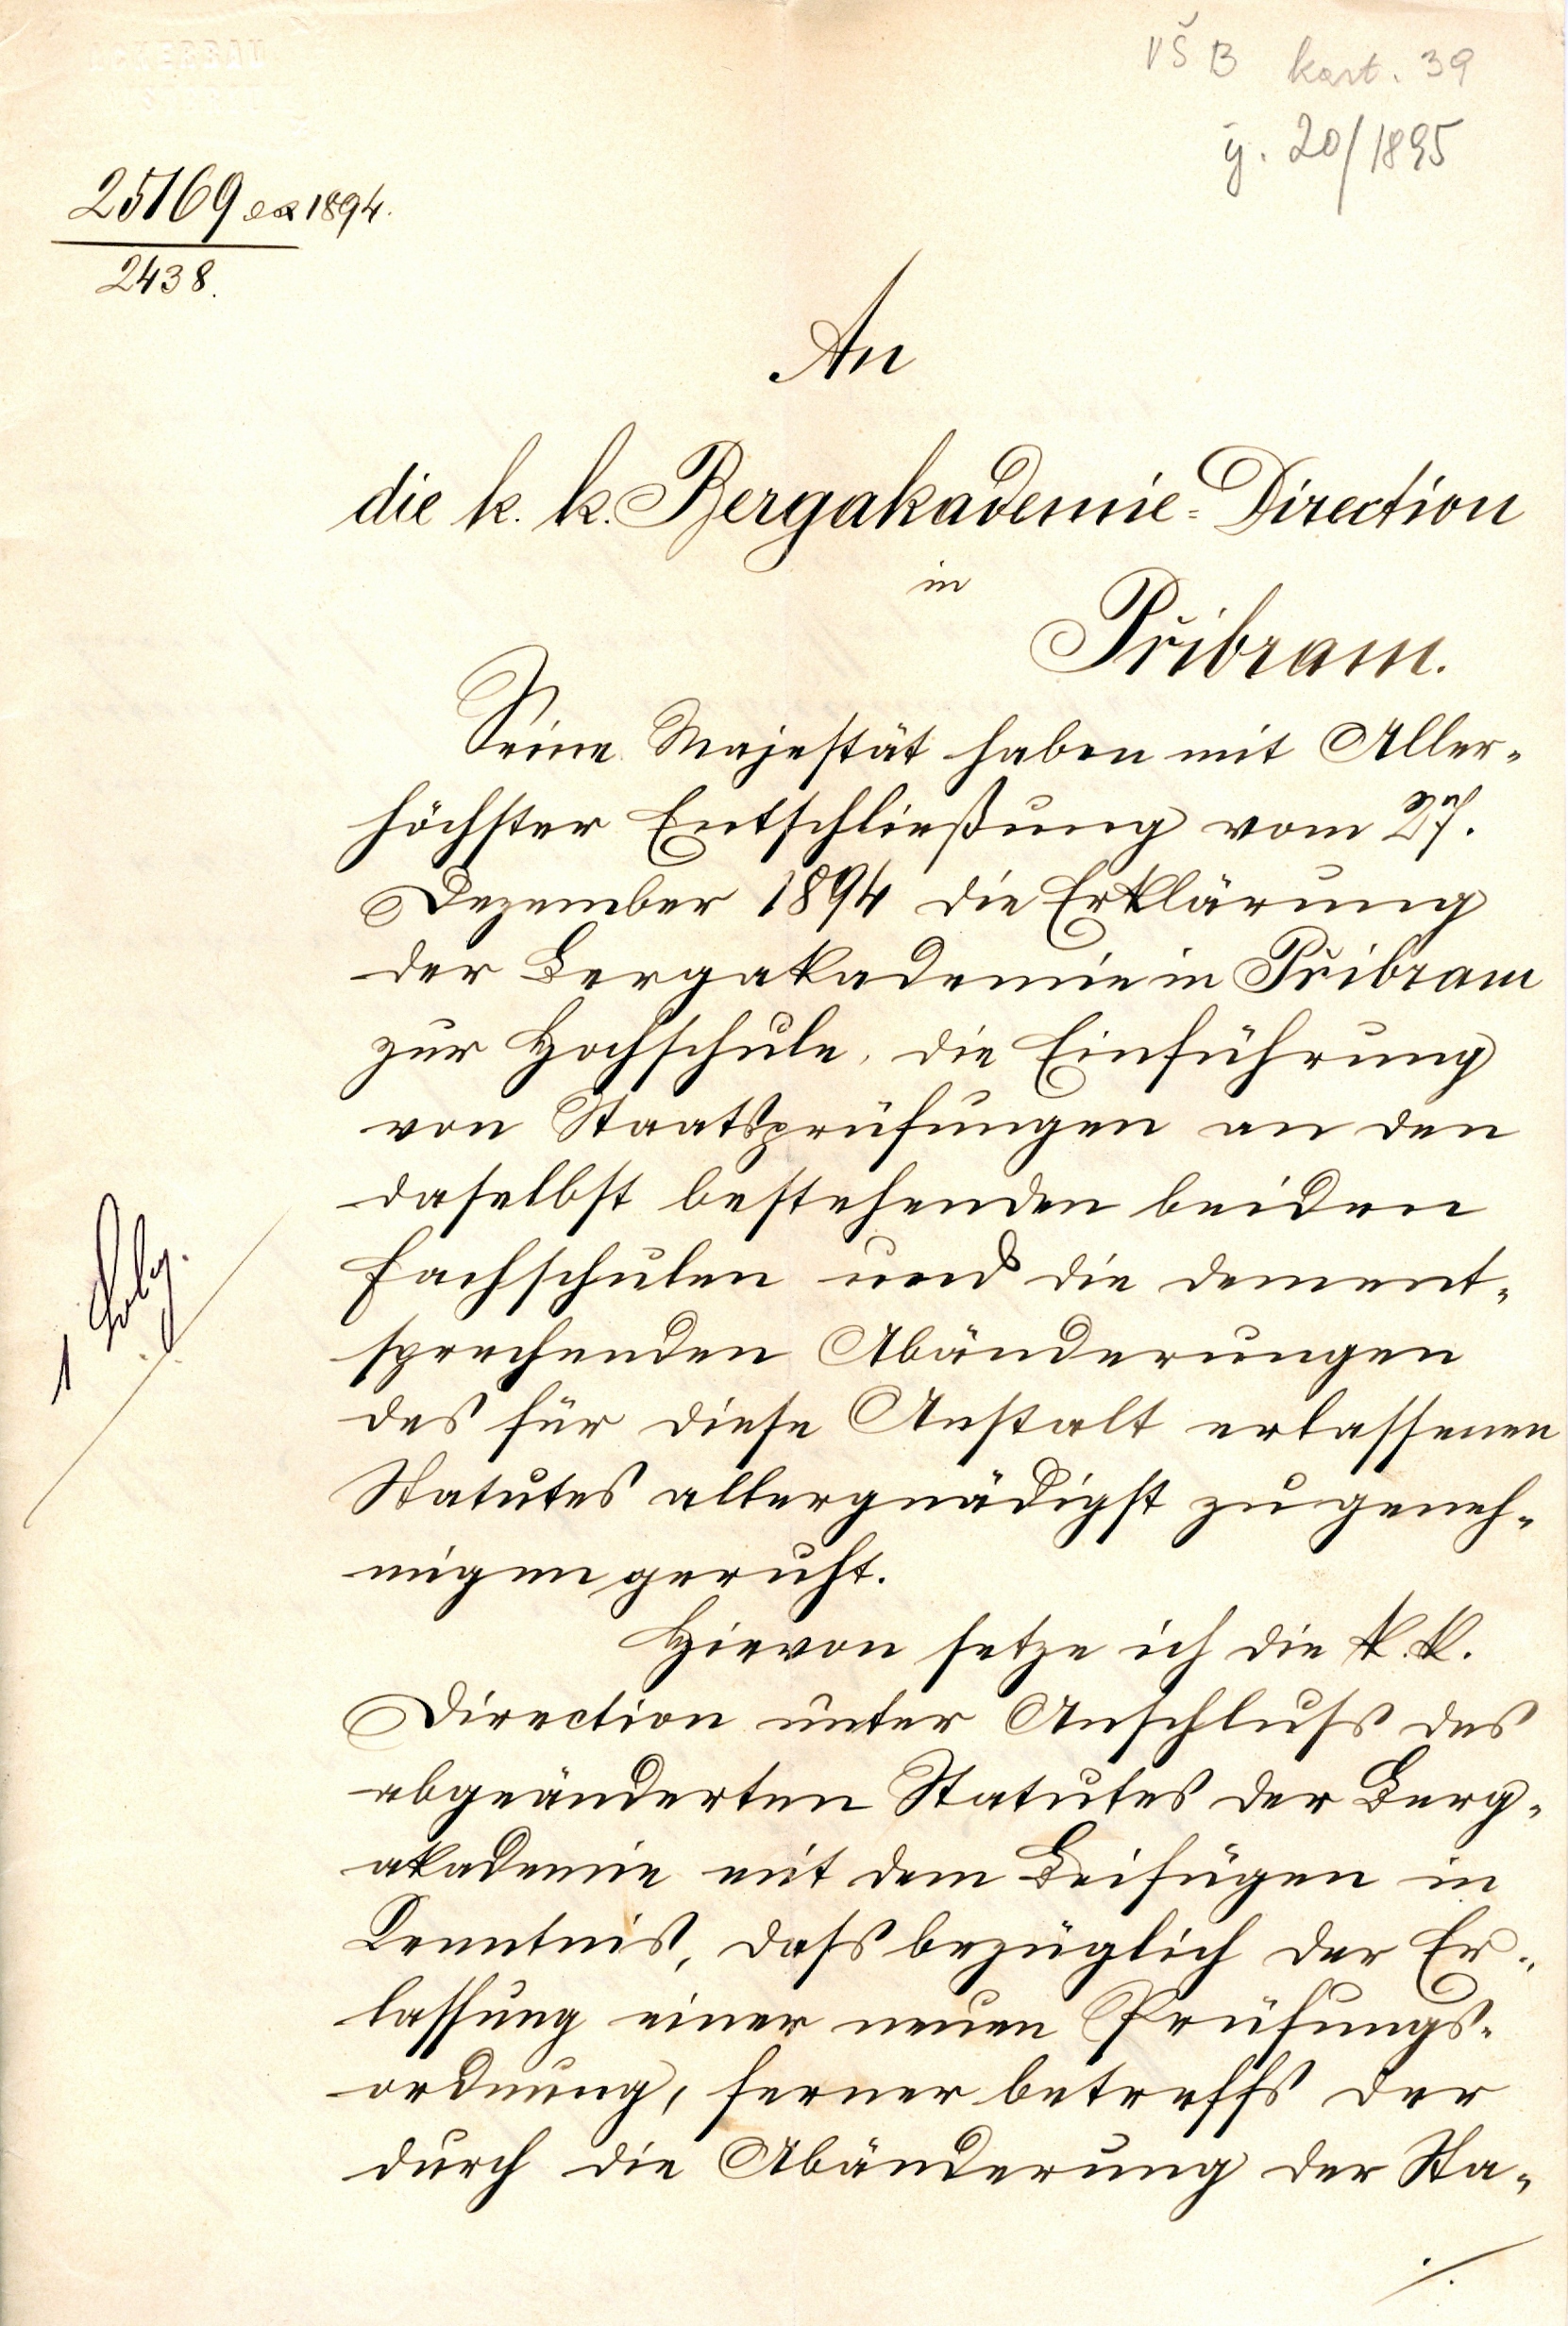 VŠB kart. 39
ij. 20/1895
25169 ex 1894.
2438.
An
die k. k. Bergakademie-Direction
in
Přibram.
Seine Majestät haben mit Aller-
höchster Entschließung vom 27.
Dezember 1894 die Erklärung
der Bergakademie in Přibram
zur Hochschule, die Einführung
von Staatsprüfungen an den
daselbst bestehenden beiden
Fachschulen und die dement-
sprechenden Abänderungen
des für diese Anstalt erlassenen
Statutes allergnädigst zu geneh-
migen geruht.
Hievon setze ich die k. k.
Direction unter Anschluss des
abgeänderten Statutes der Berg-
akademie mit dem Beifügen in
Kenntnis, dass bezüglich der Er-
lassung einer neuen Prüfungs-
ordnung, ferner betreffs der
durch die Abänderung der Sta-
./.